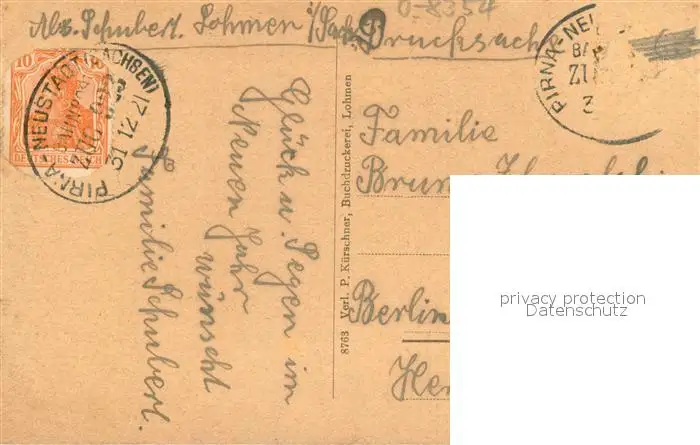 Abs. Schubert. Lohmen i/Sachs.
Drucksache
0-8354
10
DEUTSCHES REICH
PIRNA NEUSTADT (SACHSEN)
BAHNPOST
ZUG
31 12 21
PIRNA-NEU
BA
ZU
3
Glück u. Segen im
Neuen Jahr
wünscht
Familie Schubert.
8763 Verl. P. Kürschner, Buchdruckerei, Lohmen
Familie
Berlin
privacy protection
Datenschutz